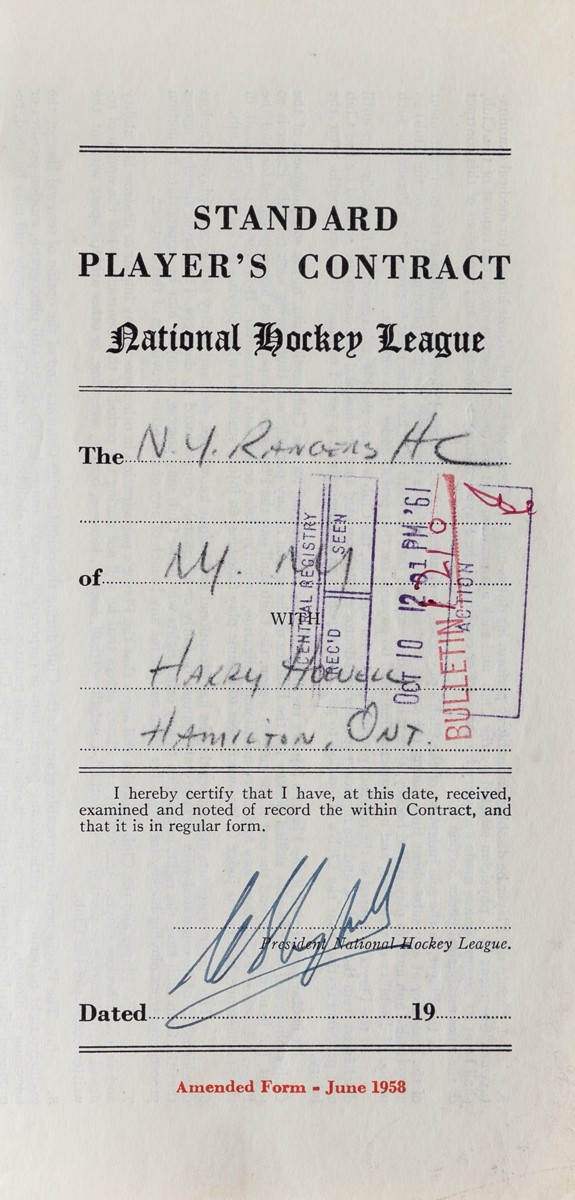 STANDARD
PLAYER'S CONTRACT
National Hockey League
The N.Y. RANGERS HC
of N.Y. NY
WITH
HARRY HOWELL
HAMILTON, ONT.
CENTRAL REGISTRY
REC'D SEEN
OCT 10 12 21 PM '61
BULLETIN 210
ACTION
I hereby certify that I have, at this date, received,
examined and noted of record the within Contract, and
that it is in regular form.
President National Hockey League.
Dated 19
Amended Form - June 1958